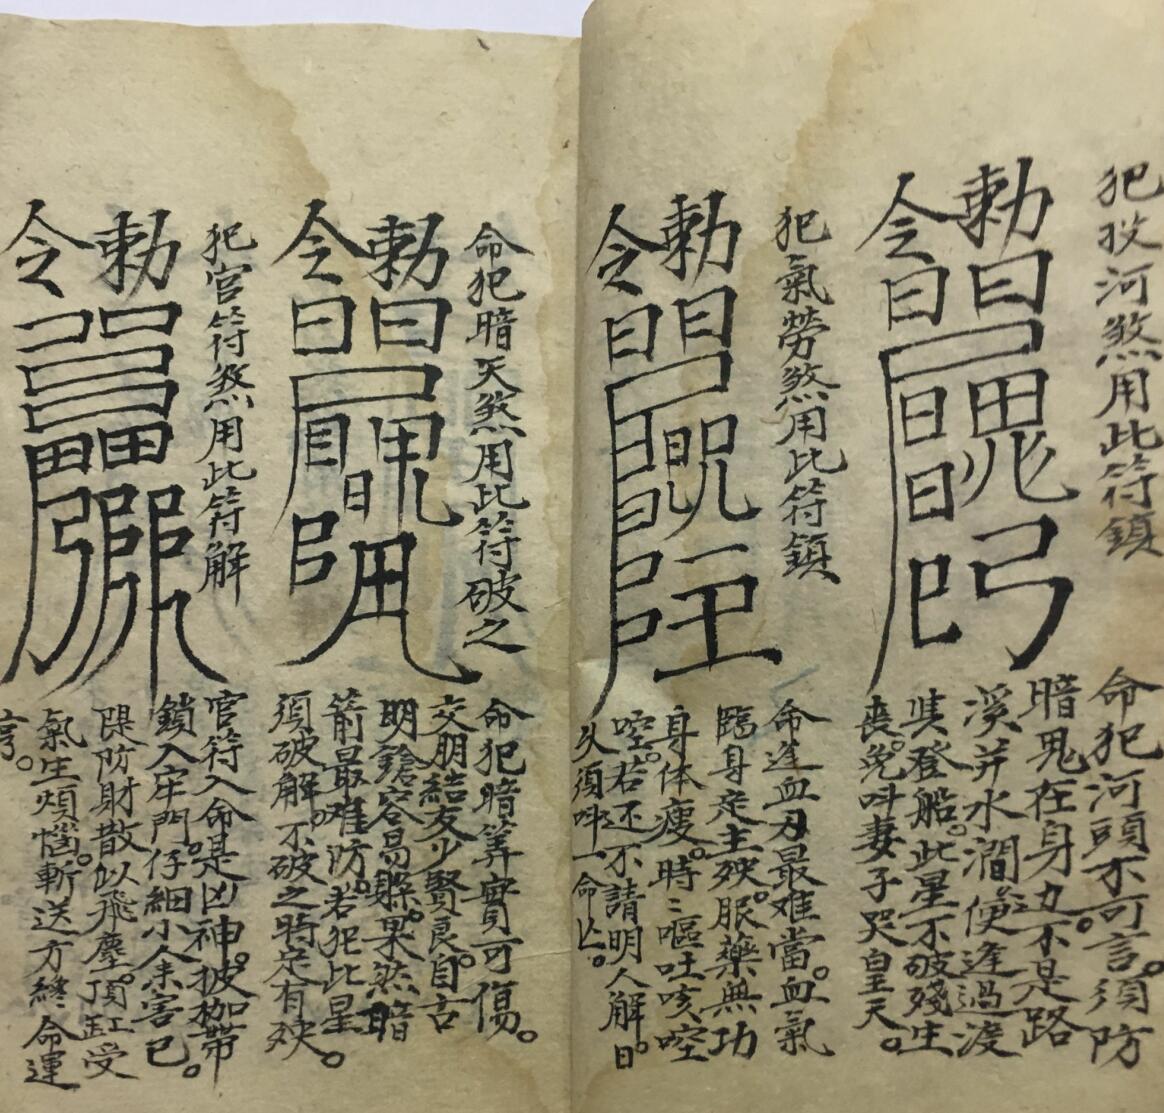 犯投河煞用此符鎮
勅令
命犯河頭不可言。須防
暗鬼在身边。不是路
溪并水澗便逢過渡
其登船。此星不破殘生
喪。免叫妻子哭皇天。
犯氣勞煞用此符鎮
勅令
命逢血刃最难當。血氣
臨身定主殃。服藥無功
身体瘦。時〻嘔吐咳
若还不請明人解。日
久須呌一命亡。
命犯暗天煞用此符破之
勅令
命犯暗筭實可傷。
交朋結友少賢良。自古
明鎗容易躱。果然暗
箭最难防。若犯此星
須破解。不破之時定有殃。
犯官符煞用此符解
勅令
官符入命是凶神。披枷帶
鎖入牢門。仔細小人来害己。
隄防財散似飛塵。頂缸受
氣生煩惱。斬送方終命運
亨。